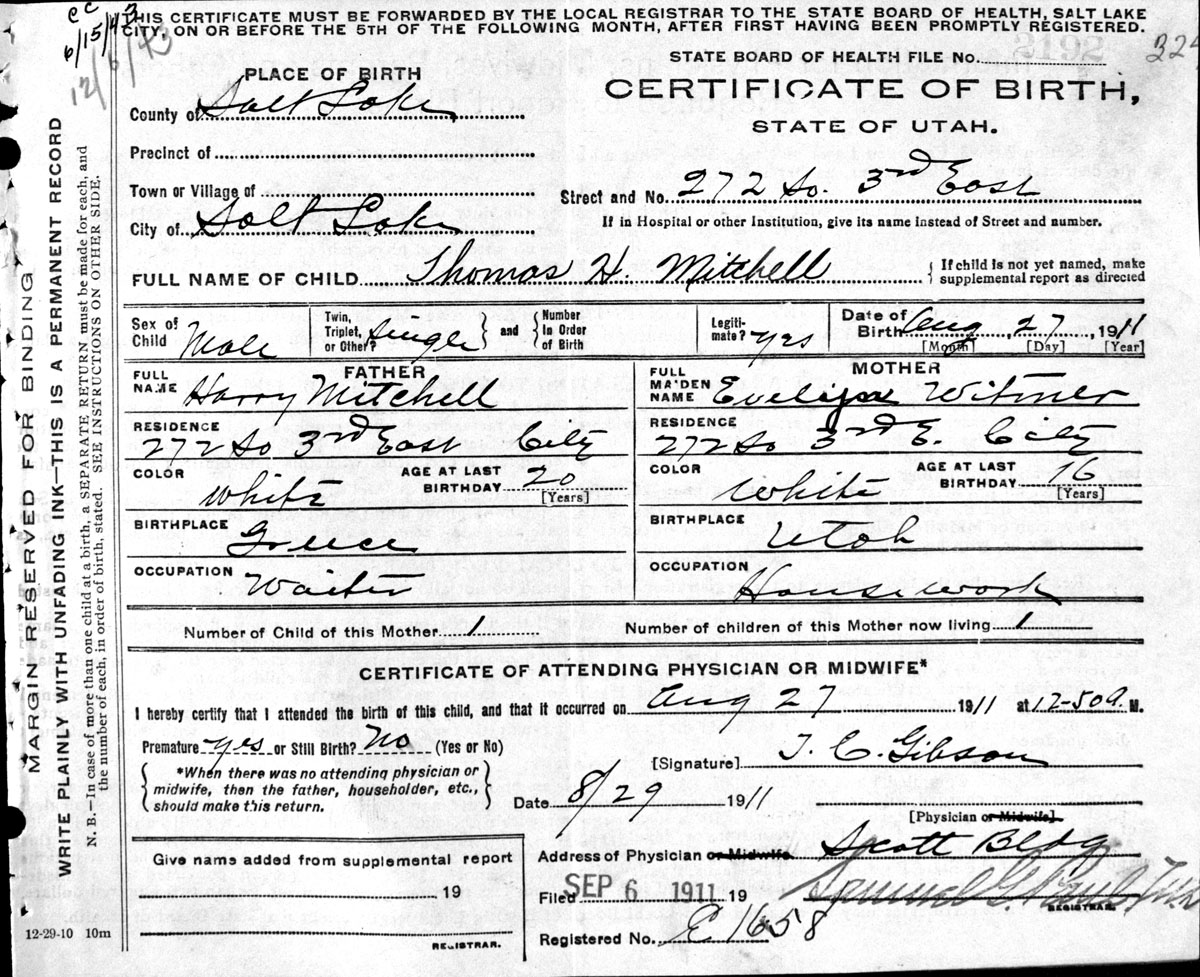 THIS CERTIFICATE MUST BE FORWARDED BY THE LOCAL REGISTRAR TO THE STATE BOARD OF HEALTH, SALT LAKE
CITY, ON OR BEFORE THE 5TH OF THE FOLLOWING MONTH, AFTER FIRST HAVING BEEN PROMPTLY REGISTERED.
STATE BOARD OF HEALTH FILE No. 2192
CERTIFICATE OF BIRTH,
STATE OF UTAH.
PLACE OF BIRTH
County of Salt Lake
Precinct of
Town or Village of
City of Salt Lake
Street and No. 272 So. 3rd East
If in Hospital or other Institution, give its name instead of Street and number.
FULL NAME OF CHILD Thomas H. Mitchell
If child is not yet named, make
supplemental report as directed
Sex of Child Male
Twin, Triplet, or Other? Single
and
Number In Order of Birth
Legitimate? Yes
Date of Birth Aug 27 1911
[Month] [Day] [Year]
FATHER
FULL NAME Harry Mitchell
RESIDENCE
272 So 3rd East City
COLOR White
AGE AT LAST BIRTHDAY 20
[Years]
BIRTHPLACE
Greece
OCCUPATION
Waiter
MOTHER
FULL MAIDEN NAME Witmer
RESIDENCE
272 So 3rd E. City
COLOR White
AGE AT LAST BIRTHDAY 16
[Years]
BIRTHPLACE
Utah
OCCUPATION
Housework
Number of Child of this Mother 1
Number of children of this Mother now living 1
CERTIFICATE OF ATTENDING PHYSICIAN OR MIDWIFE*
I hereby certify that I attended the birth of this child, and that it occurred on Aug 27 1911 at 12-50 a. M.
Premature yes or Still Birth? No (Yes or No)
*When there was no attending physician or
midwife, then the father, householder, etc.,
should make this return.
[Signature] T. C. Gibson
Date 8/29 1911
[Physician or Midwife]
Address of Physician or Midwife Scott Bldg
Filed SEP 6 1911 19
REGISTRAR.
Registered No. E 1658
Give name added from supplemental report
19
REGISTRAR.
12-29-10 10m
MARGIN RESERVED FOR BINDING
WRITE PLAINLY WITH UNFADING INK—THIS IS A PERMANENT RECORD
N. B.—In case of more than one child at a birth, a SEPARATE RETURN must be made for each, and
the number of each, in order of birth, stated. SEE INSTRUCTIONS ON OTHER SIDE.